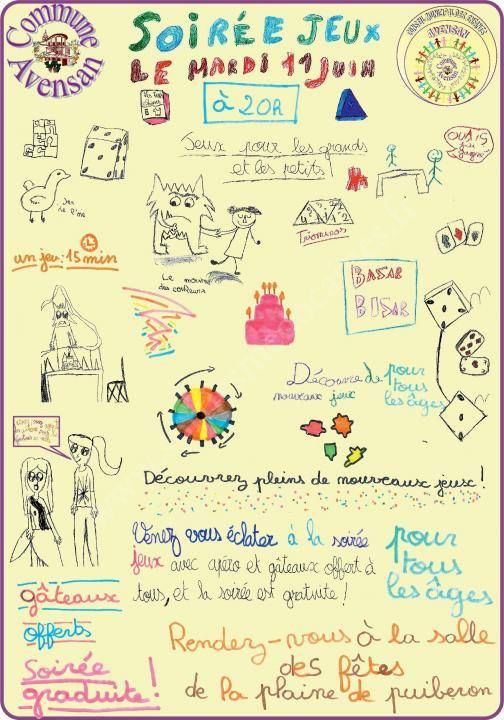 Commune
Avensan
SOIRÉE JEUX
LE MARDI 11 JUIN
à 20H
AVENSAN
Jeux pour les grands
et les petits
OUAIS
j'ai
gagné
un jeu: 15 min
Triominos
Le monstre
des couleurs
BASAR
BISAR
Découvre de
nouveaux jeux
pour
tous
les âges
Découvrez pleins de nouveaux jeux!
Venez vous éclater à la soirée
jeux avec apéro et gâteaux offert à
tous, et la soirée est gratuite!
pour
tous
les âges
gâteaux
offerts
Soirée
graduite!
Rendez-vous à la salle
des fêtes
de la plaine de puiberon